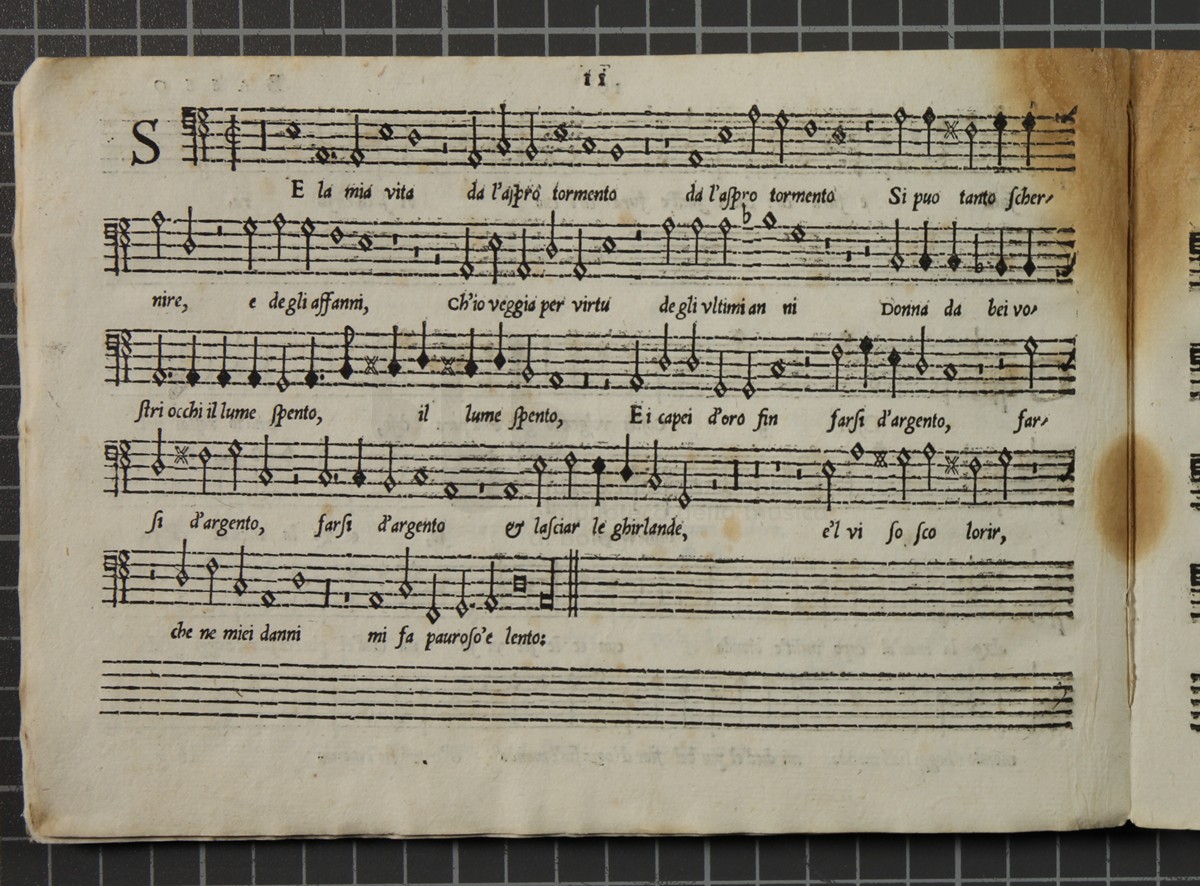 ii
S
E la mia vita da l'aſpro tormento da l'aſpro tormento Si puo tanto ſcher⸗
nire, e de gli affanni, Ch'io veggia per virtu de gli vltimi an ni Donna da bei vo⸗
ſtri occhi il lume ſpento, il lume ſpento, E i capei d'oro fin farſi d'argento, far⸗
ſi d'argento, farſi d'argento & laſciar le ghirlande, e'l vi ſo ſco lorir,
che ne miei danni mi fa pauroſo'e lento: